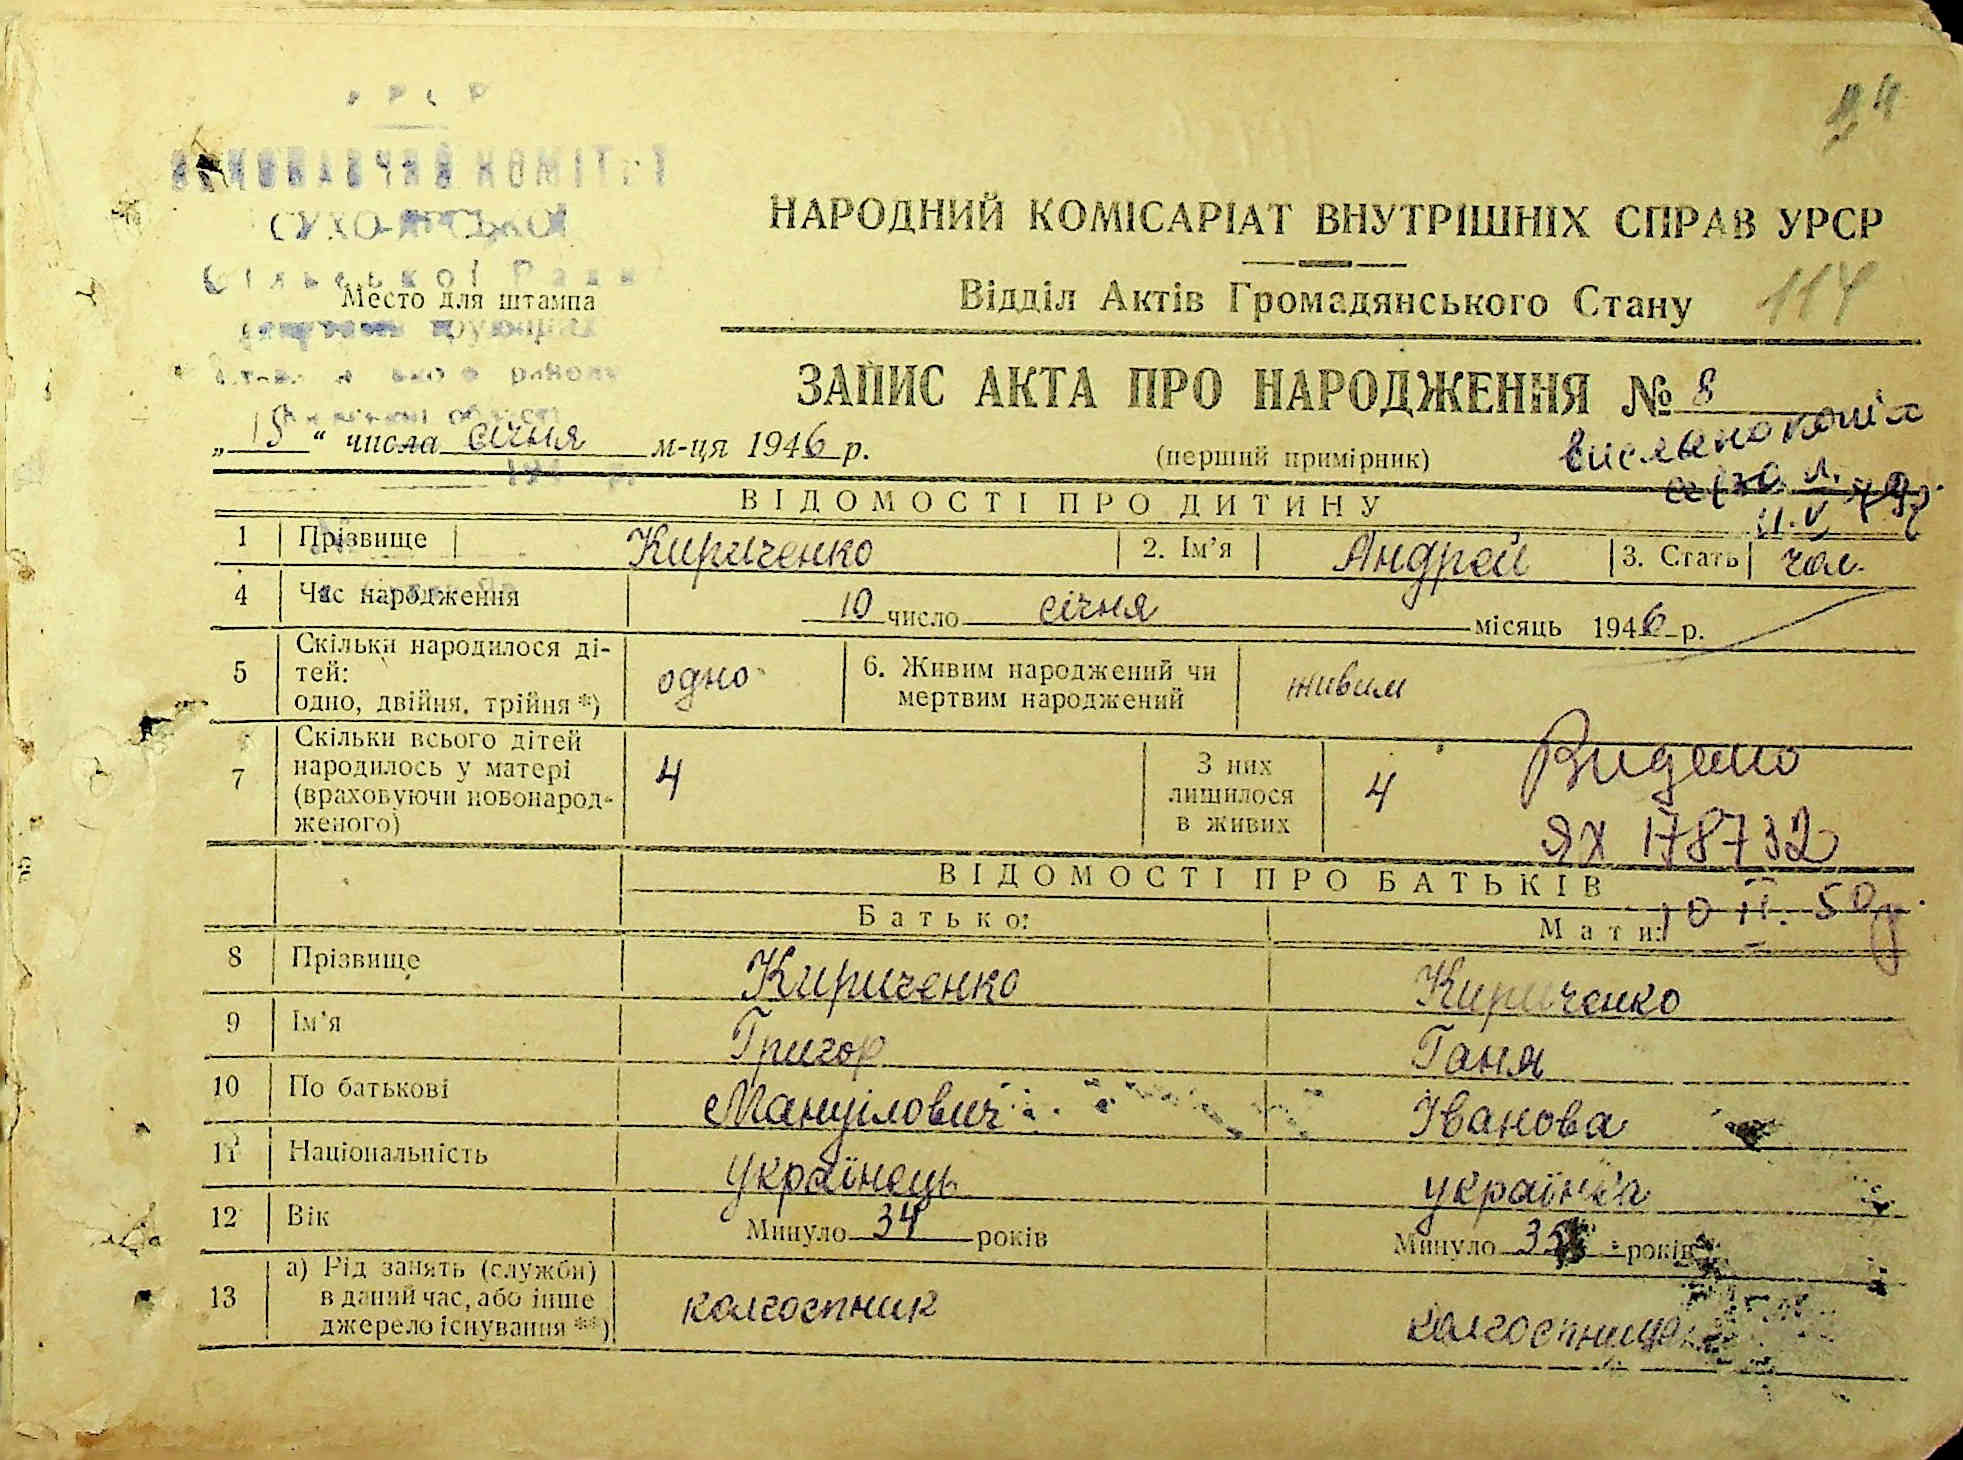 УРСР
ВИКОНАВЧИЙ КОМІТЕТ
СУХО-ЯРСЬКОЇ
Сільської Ради
Место для штампа
депутатів трудящих
району
області
114
НАРОДНИЙ КОМІСАРІАТ ВНУТРІШНІХ СПРАВ УРСР
Відділ Актів Громадянського Стану
ЗАПИС АКТА ПРО НАРОДЖЕННЯ № 8
„15“ числа січня м-ця 1946 р.
(перший примірник)
вислано копія
11.V
ВІДОМОСТІ ПРО ДИТИНУ
1 Прізвище Кириченко 2. Ім'я Андрей 3. Стать чол.
4 Час народження 10 число січня місяць 1946 р.
5 Скільки народилося ді-
тей:
одно, двійня, трійня *) одно 6. Живим народжений чи
мертвим народжений живим
7 Скільки всього дітей
народилось у матері
(враховуючи новонарод-
женого) 4 З них
лишилося
в живих 4
Видано
ЯХ 178732
10 II. 50 р
ВІДОМОСТІ ПРО БАТЬКІВ
Батько: Мати:
8 Прізвище Кириченко Кириченко
9 Ім'я Григор Ганя
10 По батькові Мануілович Іванова
11 Національність українець українка
12 Вік Минуло 34 років Минуло 35 років
13 а) Рід занять (служби)
в даний час, або інше
джерело існування **) колгоспник колгоспниця